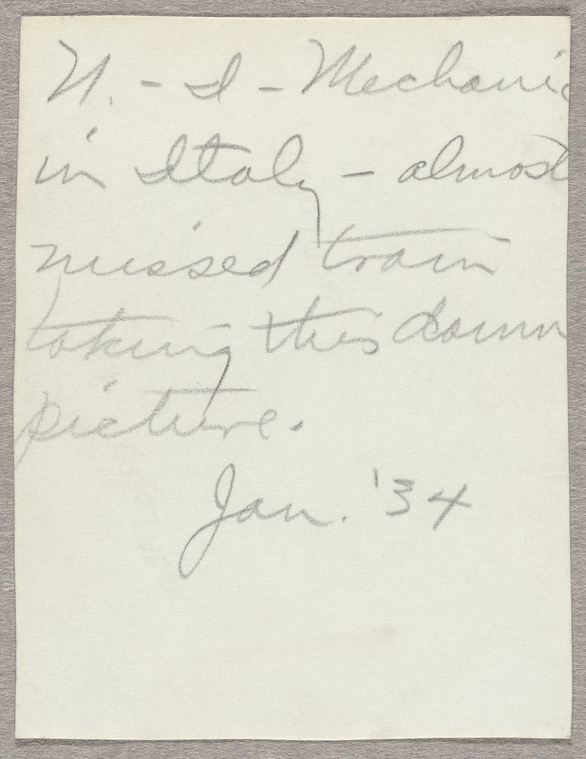 N. - I - Mechanic
in Italy - almost
missed train
taking this damn
picture.
Jan. '34